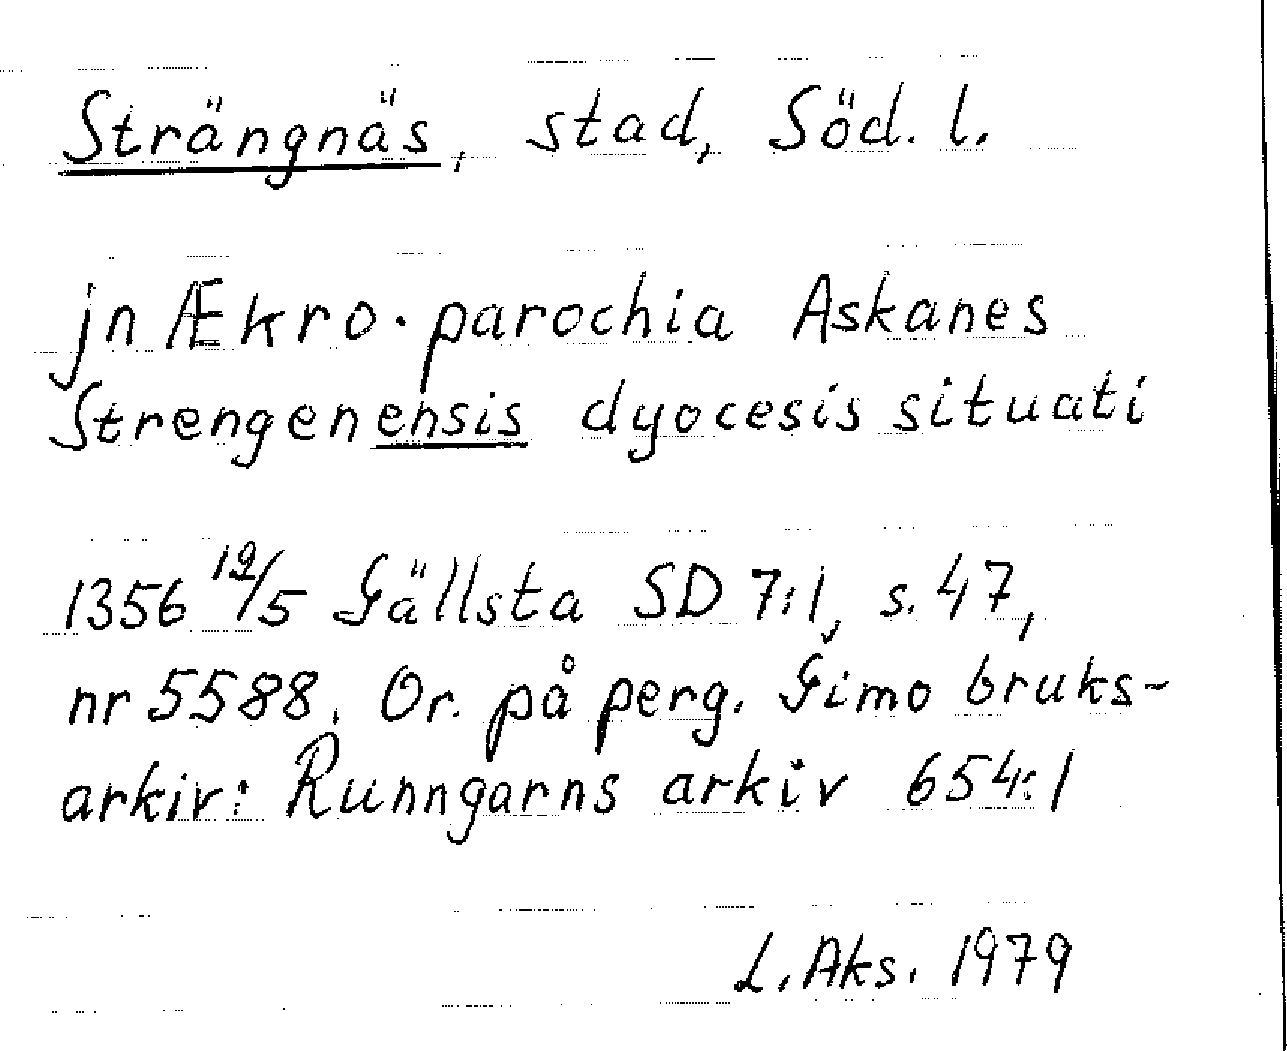 Strängnäs, stad, Söd. l.
jn Ækro. parochia Askanes
Strengenensis dyocesis situati
1356 12/5 Gällsta SD 7:1, s. 47,
nr 5588. Or. på perg. Gimo bruks-
arkiv: Runngarns arkiv 654:1
L. Aks. 1979